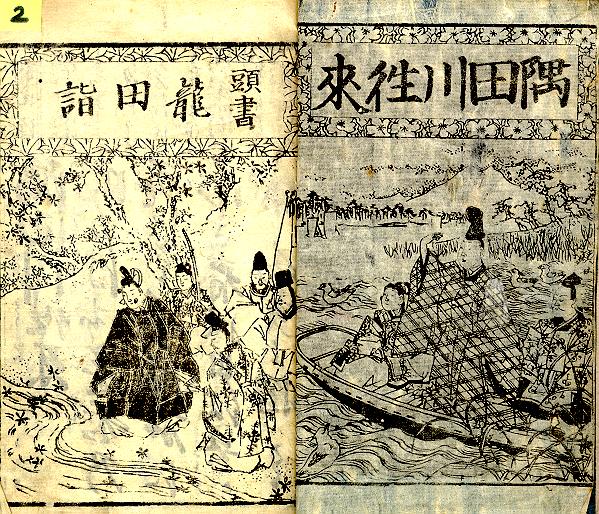 隅田川往來
頭書
龍田詣
2